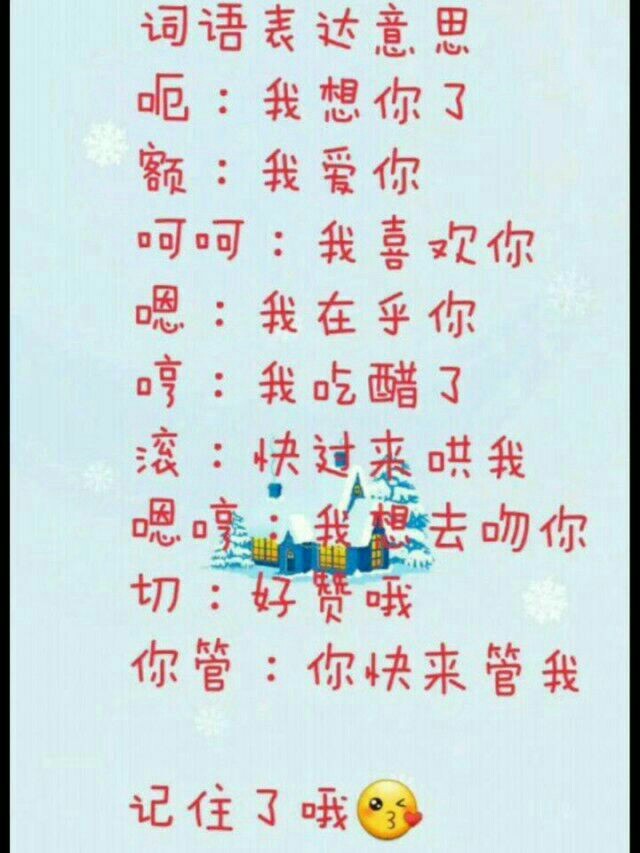 词语表达意思
呃：我想你了
额：我爱你
呵呵：我喜欢你
嗯：我在乎你
哼：我吃醋了
滚：快过来哄我
嗯哼：我想去吻你
切：好赞哦
你管：你快来管我
记住了哦